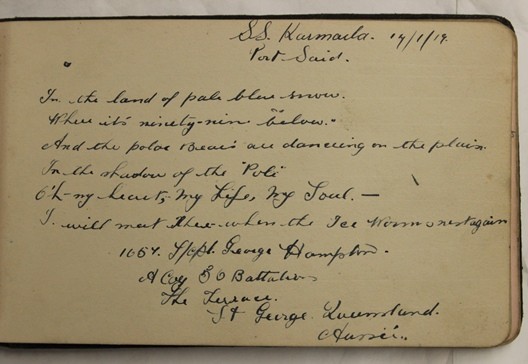 S.S. Karmarla. 14/1/19.
Port-Said.
In the land of pale blue snow.
Where it's ninety-nine below.-
And the polar Bears are dancing on the plain.
In the shadow of the "Pole"
O'h my heart, My Life, My Soul. —
I will meet thee when the Ice Worms nest again
1657. George Hampton.
A Coy 50 Battalion
The Terrace.
St George. Queensland.